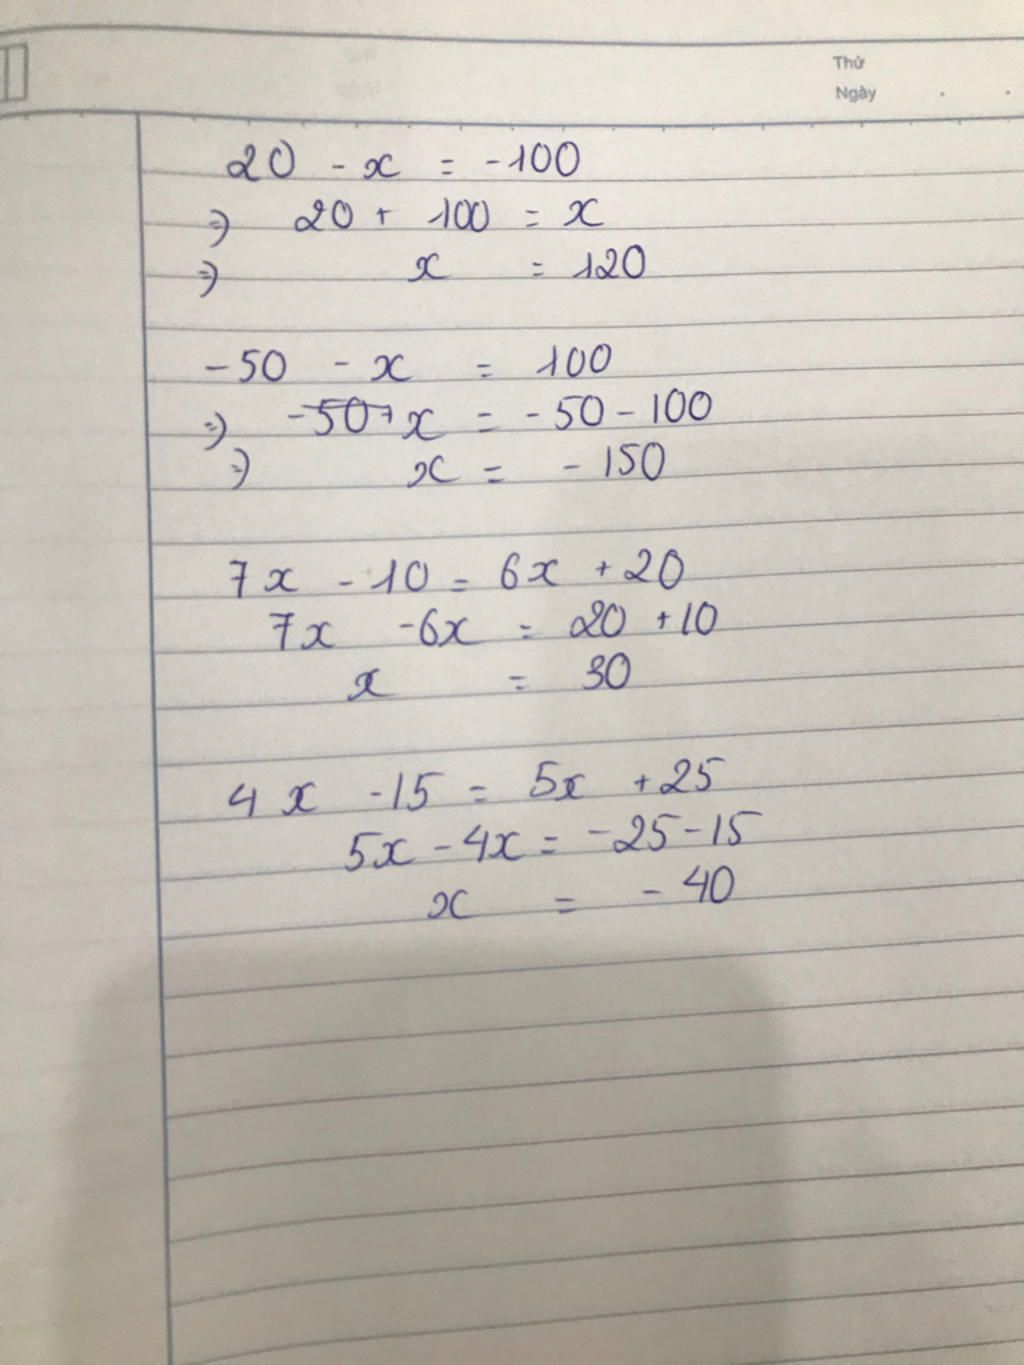 Thứ
Ngày
20 - x = -100
=> 20 + 100 = x
=> x = 120
-50 - x = 100
=> x = -50 - 100
=> x = -150
7x - 10 = 6x + 20
7x - 6x = 20 + 10
x = 30
4x - 15 = 5x + 25
5x - 4x = -25 - 15
x = -40